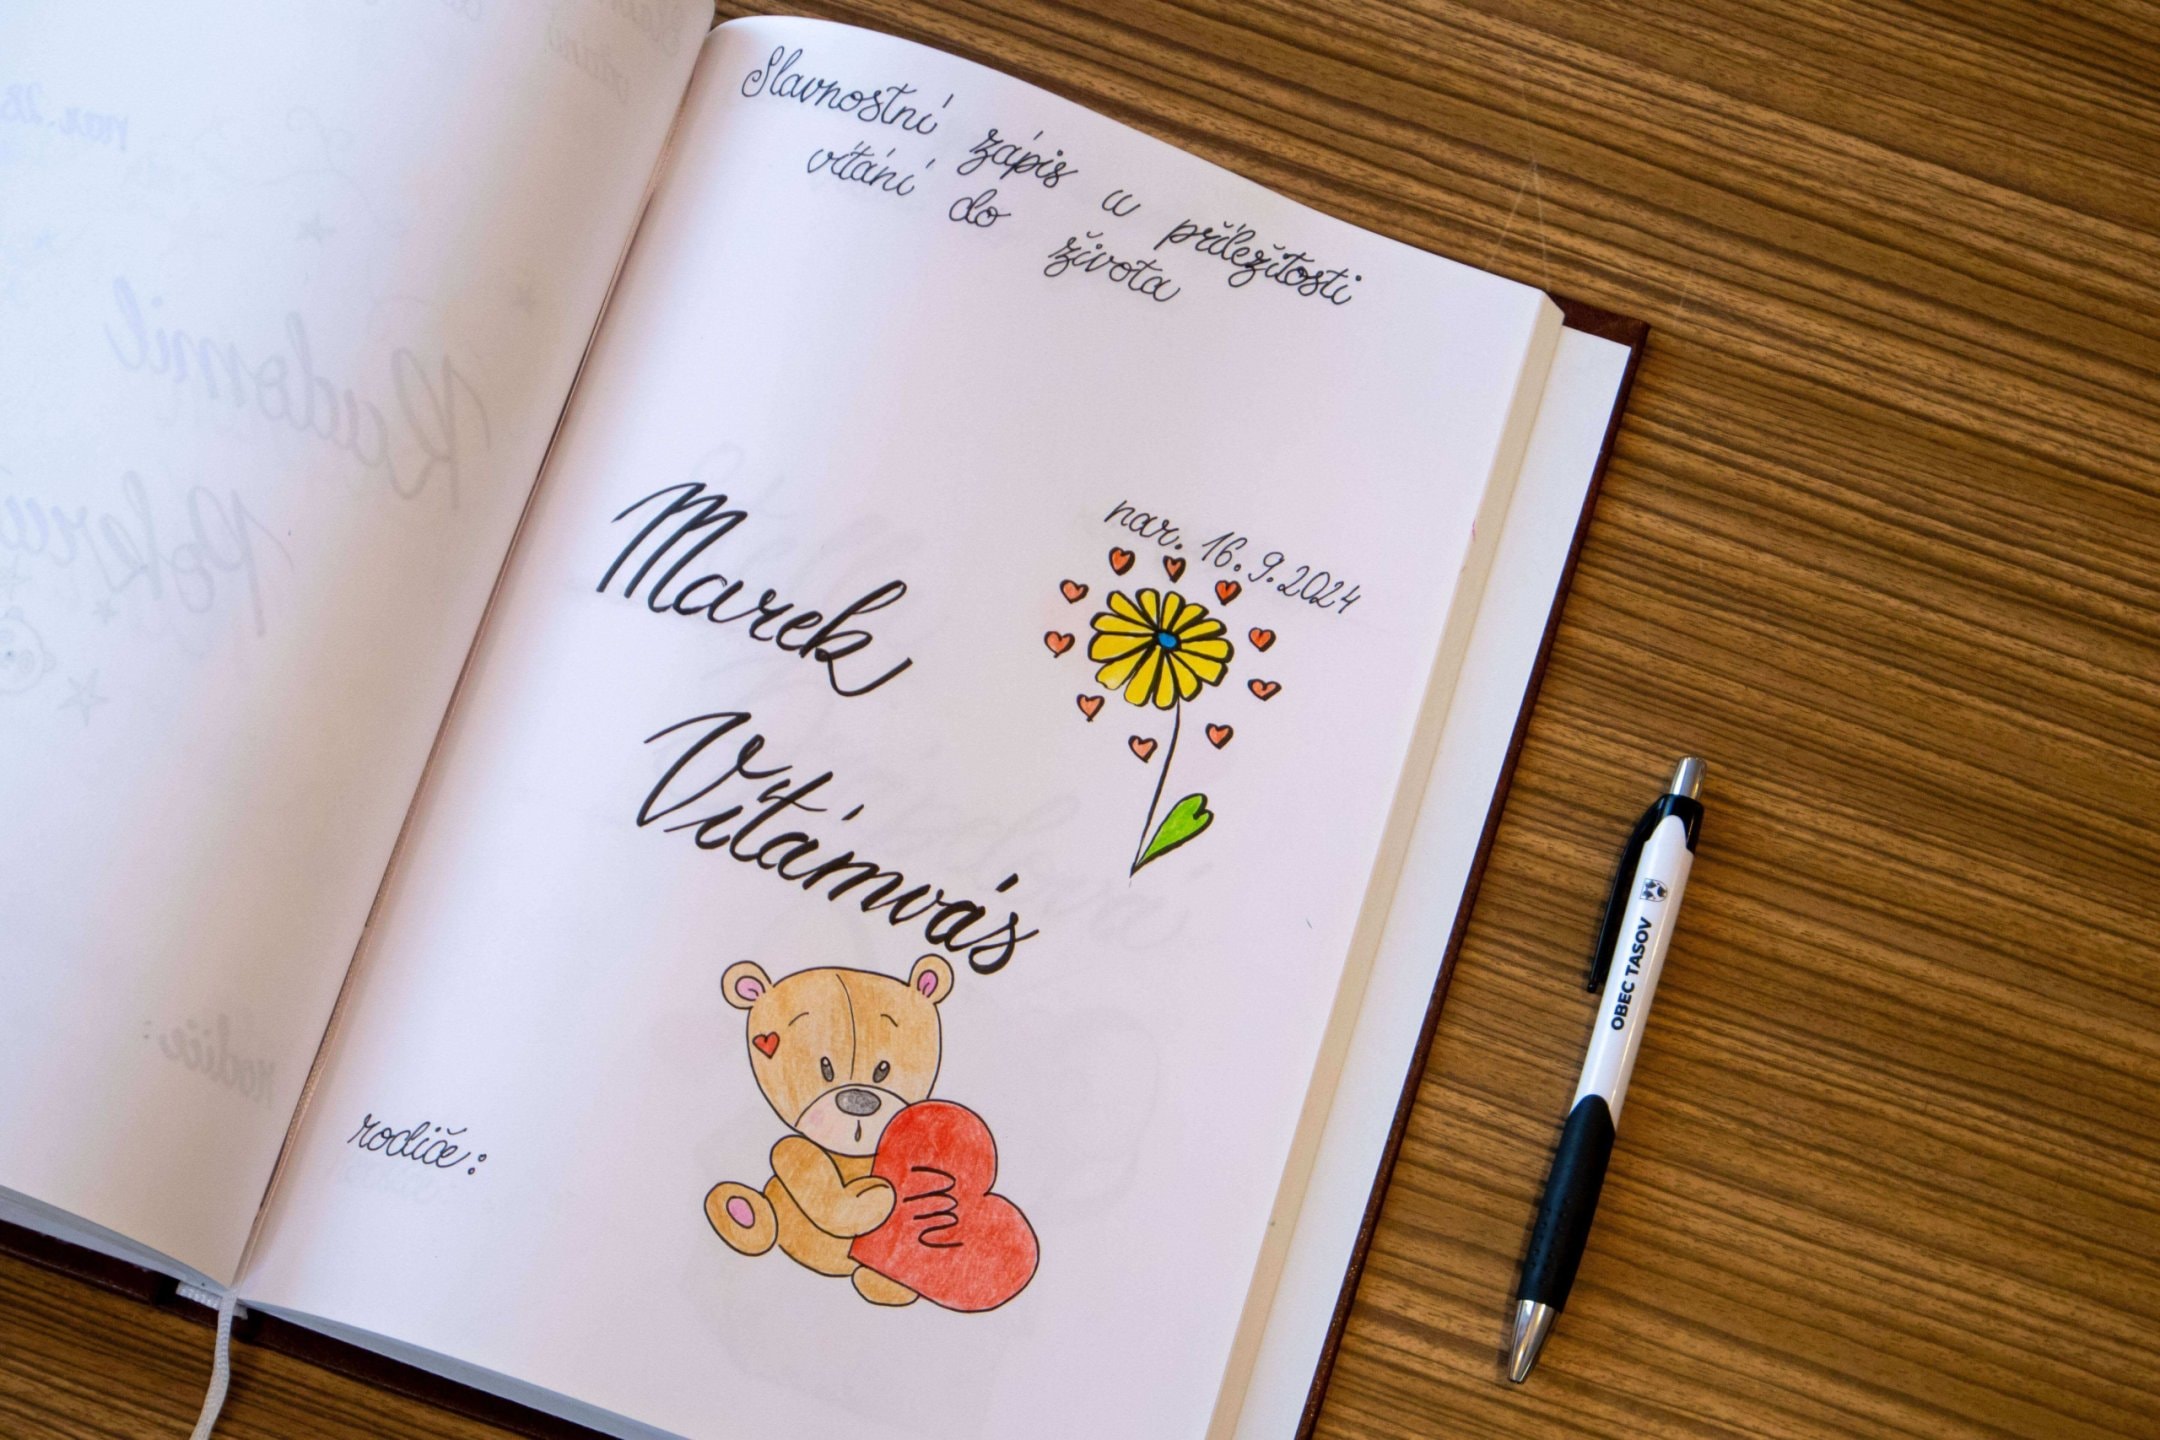 Slavnostní zápis u příležitosti
vítání do života
nar. 16.9.2024
Marek
Vítámvás
rodiče:
OBEC TASOV
Radomil
rodiče: